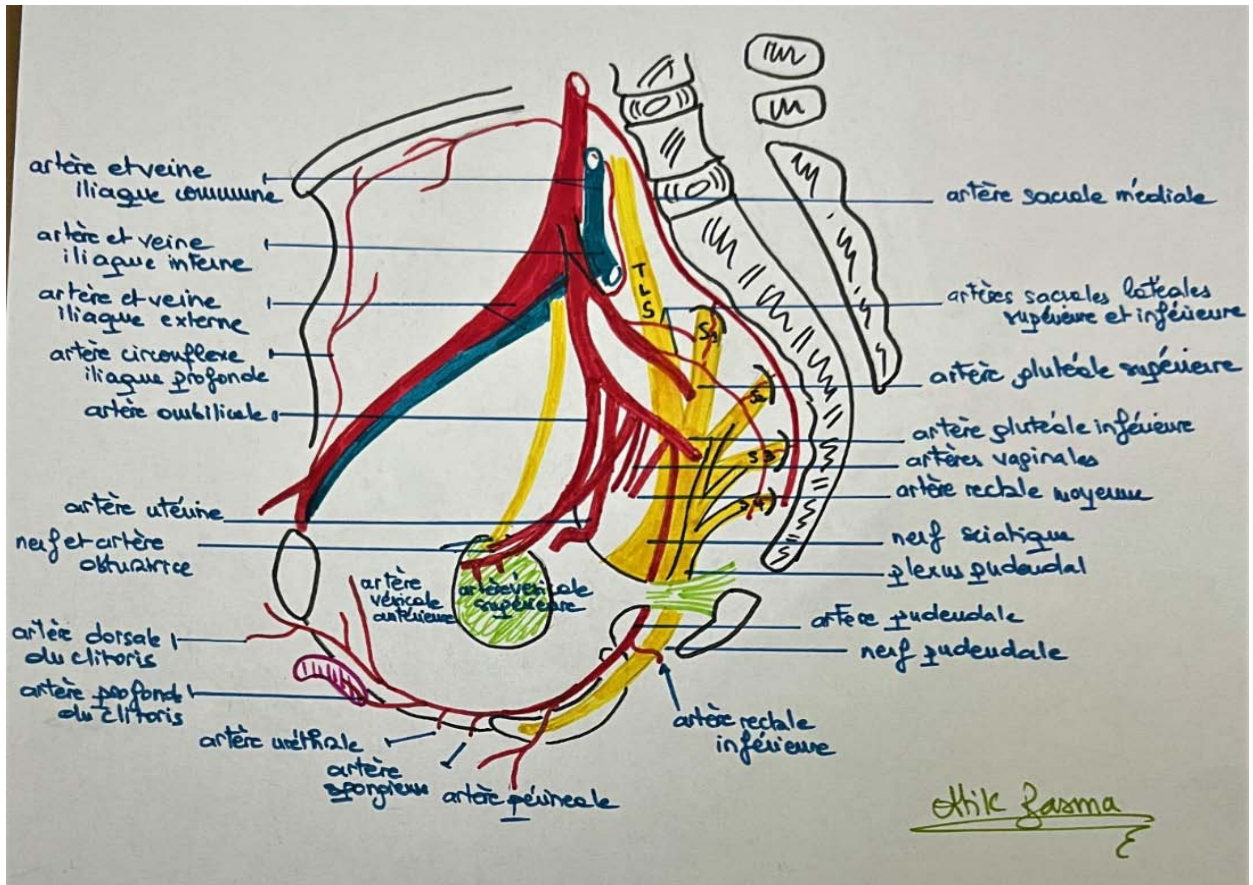 artère et veine
iliaque commune
artère et veine
iliaque interne
artère et veine
iliaque externe
artère circonflexe
iliaque profonde
artère ombilicale
artère utérine
nerf et artère
obturatrice
artère dorsale
du clitoris
artère profonde
du clitoris
artère uréthrale
artère
spongieuse
artère périneale
artère
vésicale
antérieure
artère vésicale
supérieure
TLS
S1
S2
S3
artère sacrale médiale
artères sacrales latérales
supérieure et inférieure
artère glutéale supérieure
artère glutéale inférieure
artères vaginales
artère rectale moyenne
nerf sciatique
plexus pudendal
artère pudendale
nerf pudendale
artère rectale
inférieure